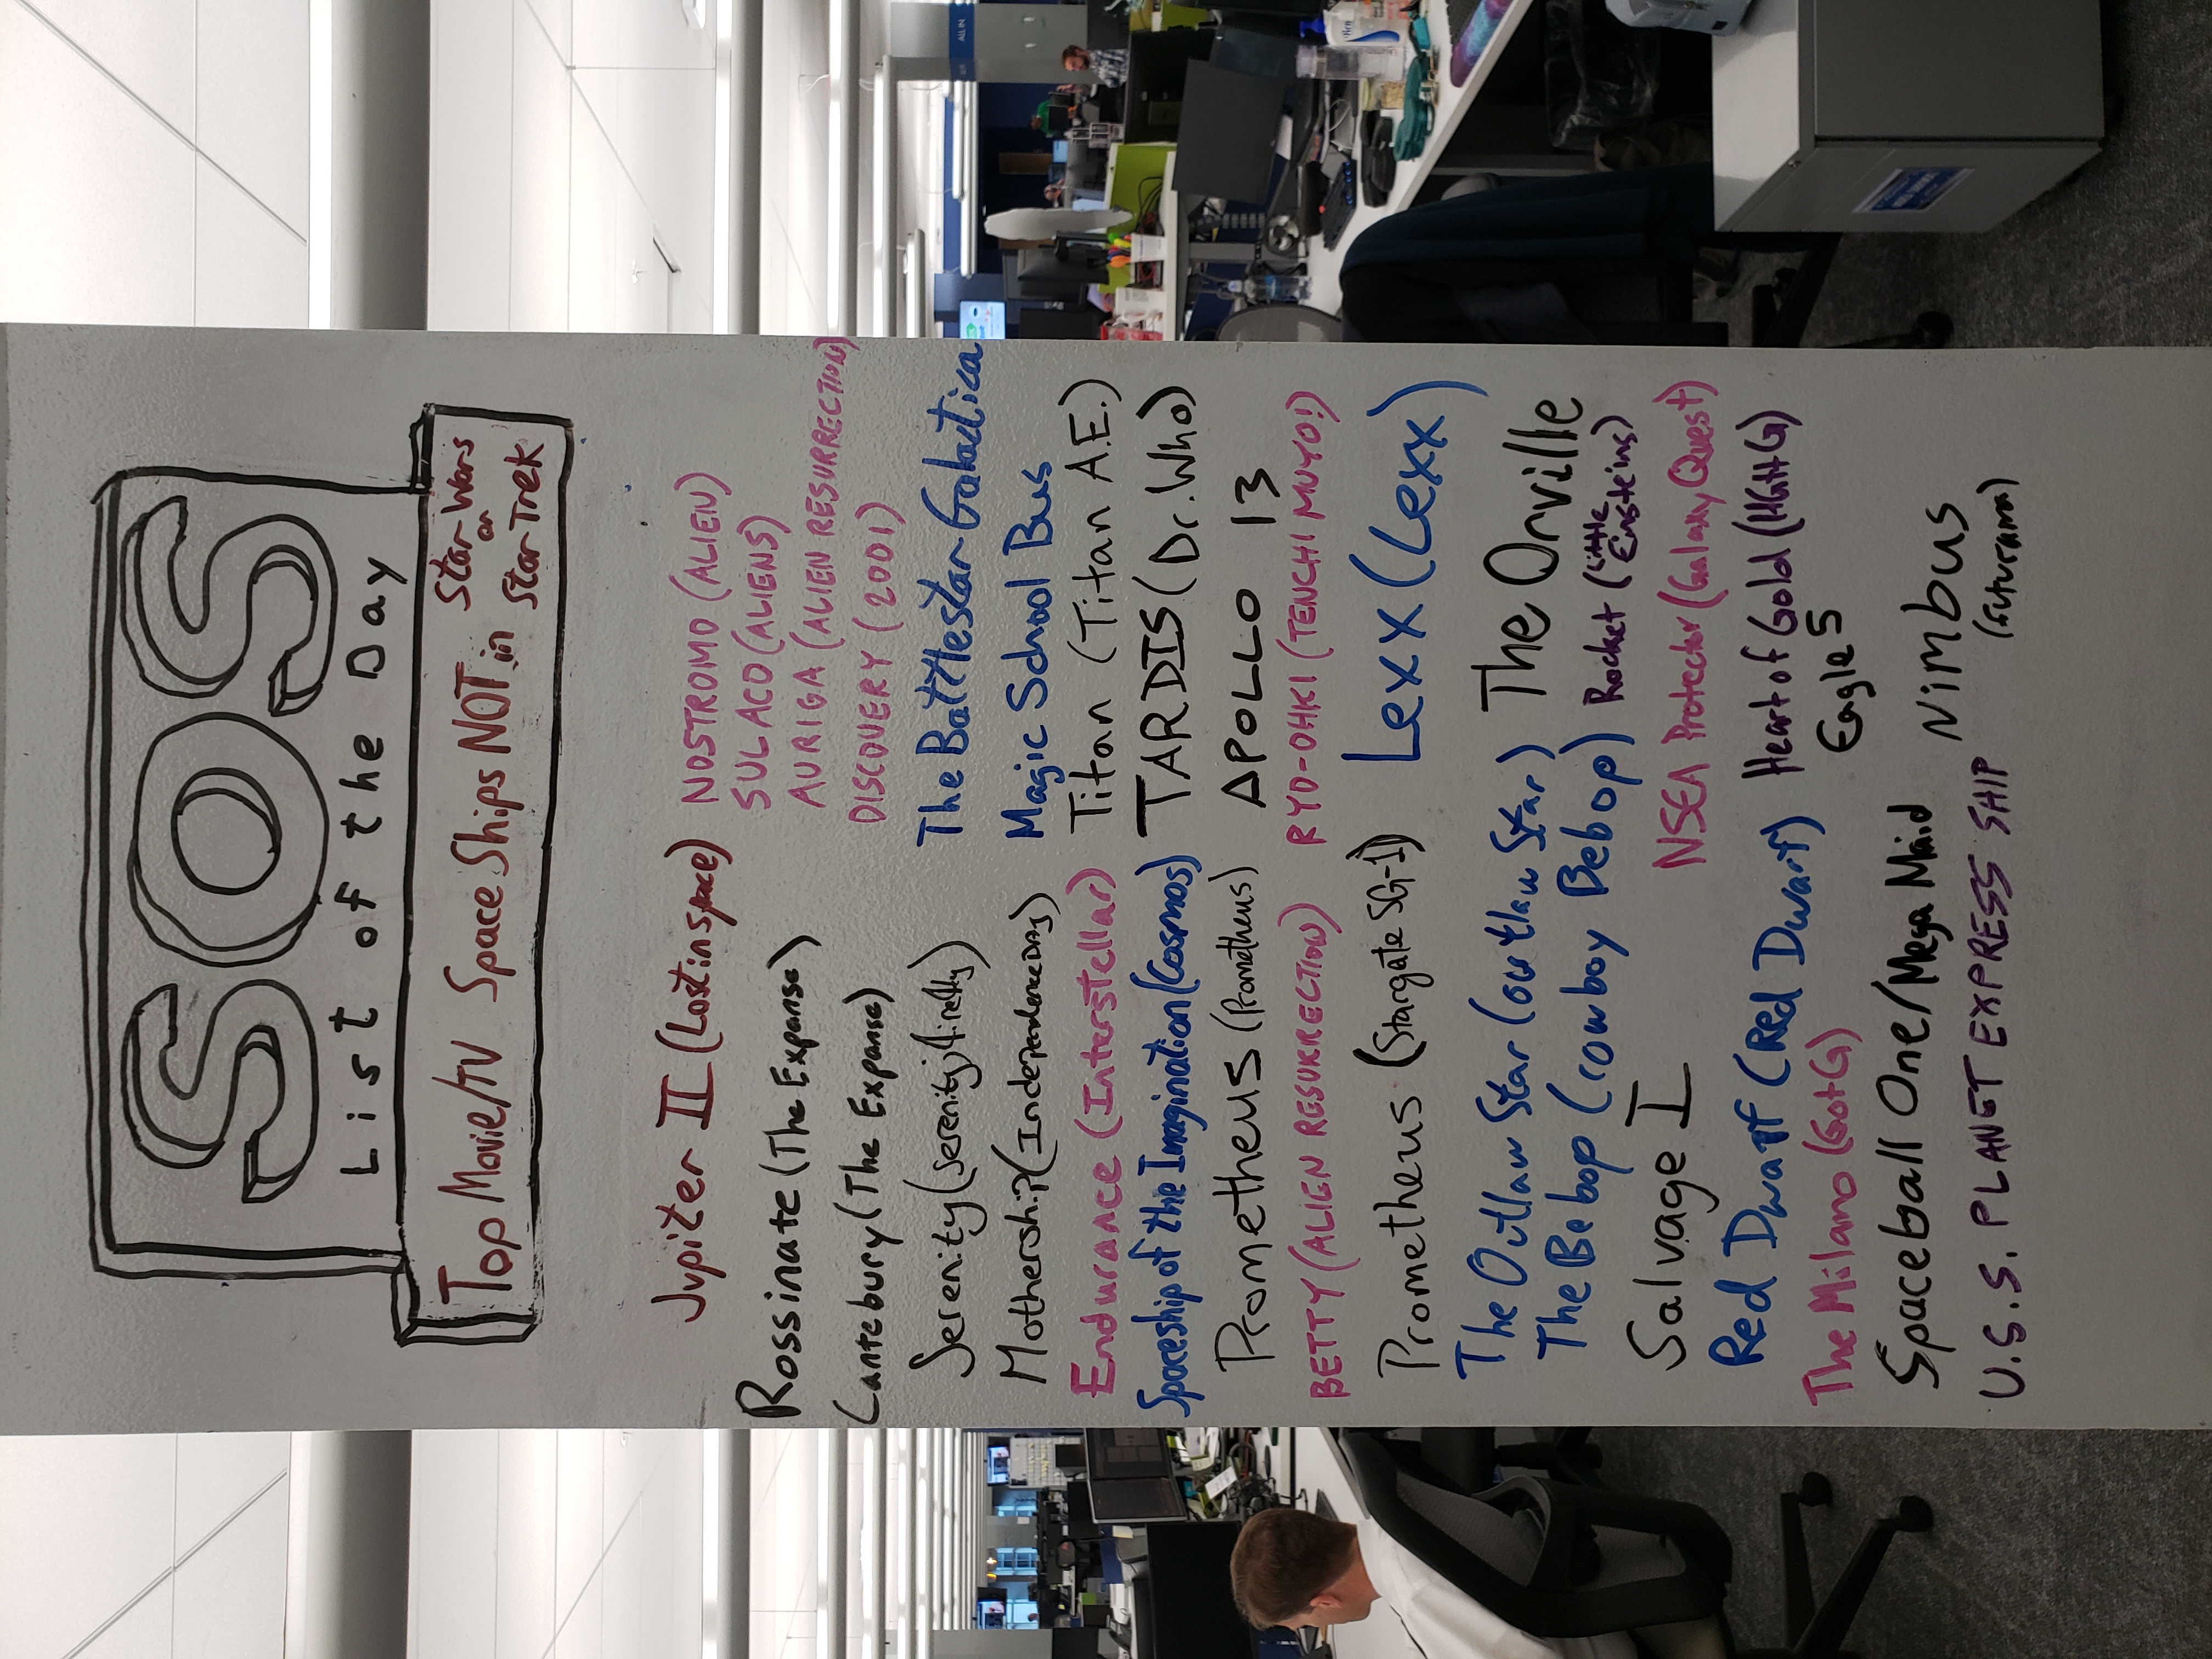 SOS
List of the Day
Top Movie/TV Space Ships NOT in Star Wars or Star Trek
Jupiter II (Lost in space)
Rossinate (The Expanse)
Cantebury (The Expanse)
Serenity (Serenity, firefly)
Mothership (Independence Day)
Endurance (Interstellar)
Spaceship of the Imagination (Cosmos)
Prometheus (Prometheus)
BETTY (ALIEN RESURRECTION)
Prometheus (Stargate SG-1)
The Outlaw Star (outlaw Star)
The Bebop (cowboy Bebop)
Salvage I
Red Dwarf (Red Dwarf)
The Milano (GotG)
Spaceball One/Mega Maid
U.S.S. PLANET EXPRESS SHIP
NOSTROMO (ALIEN)
SULACO (ALIENS)
AURIGA (ALIEN RESURRECTION)
DISCOVERY (2001)
The Battlestar Galactica
Magic School Bus
Titan (Titan A.E.)
TARDIS (Dr. Who)
APOLLO 13
RYO-OHKI (TENCHI MUYO!)
Lexx (Lexx)
The Orville
Rocket (Little Einsteins)
NSEA Protector (Galaxy Quest)
Heart of Gold (HGttG)
Eagle 5
Nimbus
(futurama)
ALL IN